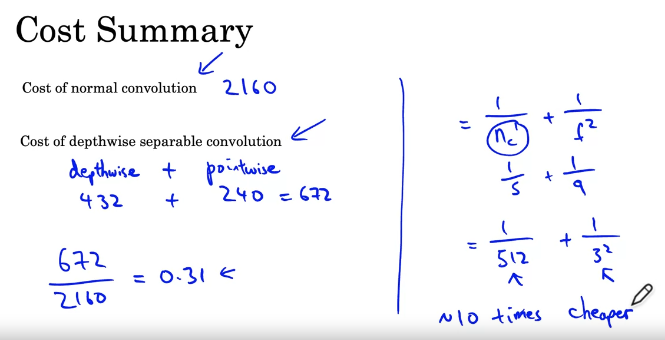 Cost Summary
Cost of normal convolution 2160
Cost of depthwise separable convolution
depthwise + pointwise
432 + 240 = 672
672/2160 = 0.31 ←
= 1/n_c' + 1/f²
1/5 + 1/9
= 1/512 + 1/3²
~10 times cheaper